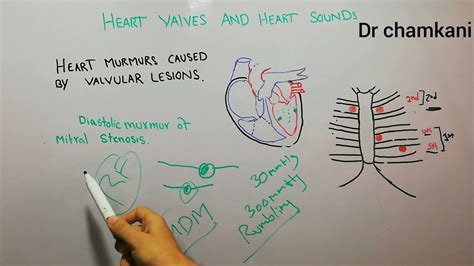 HEART VALVES AND HEART SOUNDS
Dr chamkani
HEART MURMURS CAUSED
BY VALVULAR LESIONS.
Diastolic murmur of
Mitral Stenosis.
30mmHg
300mmHg
Rumbling
MDM
2nd
2nd
4th
5th
1st